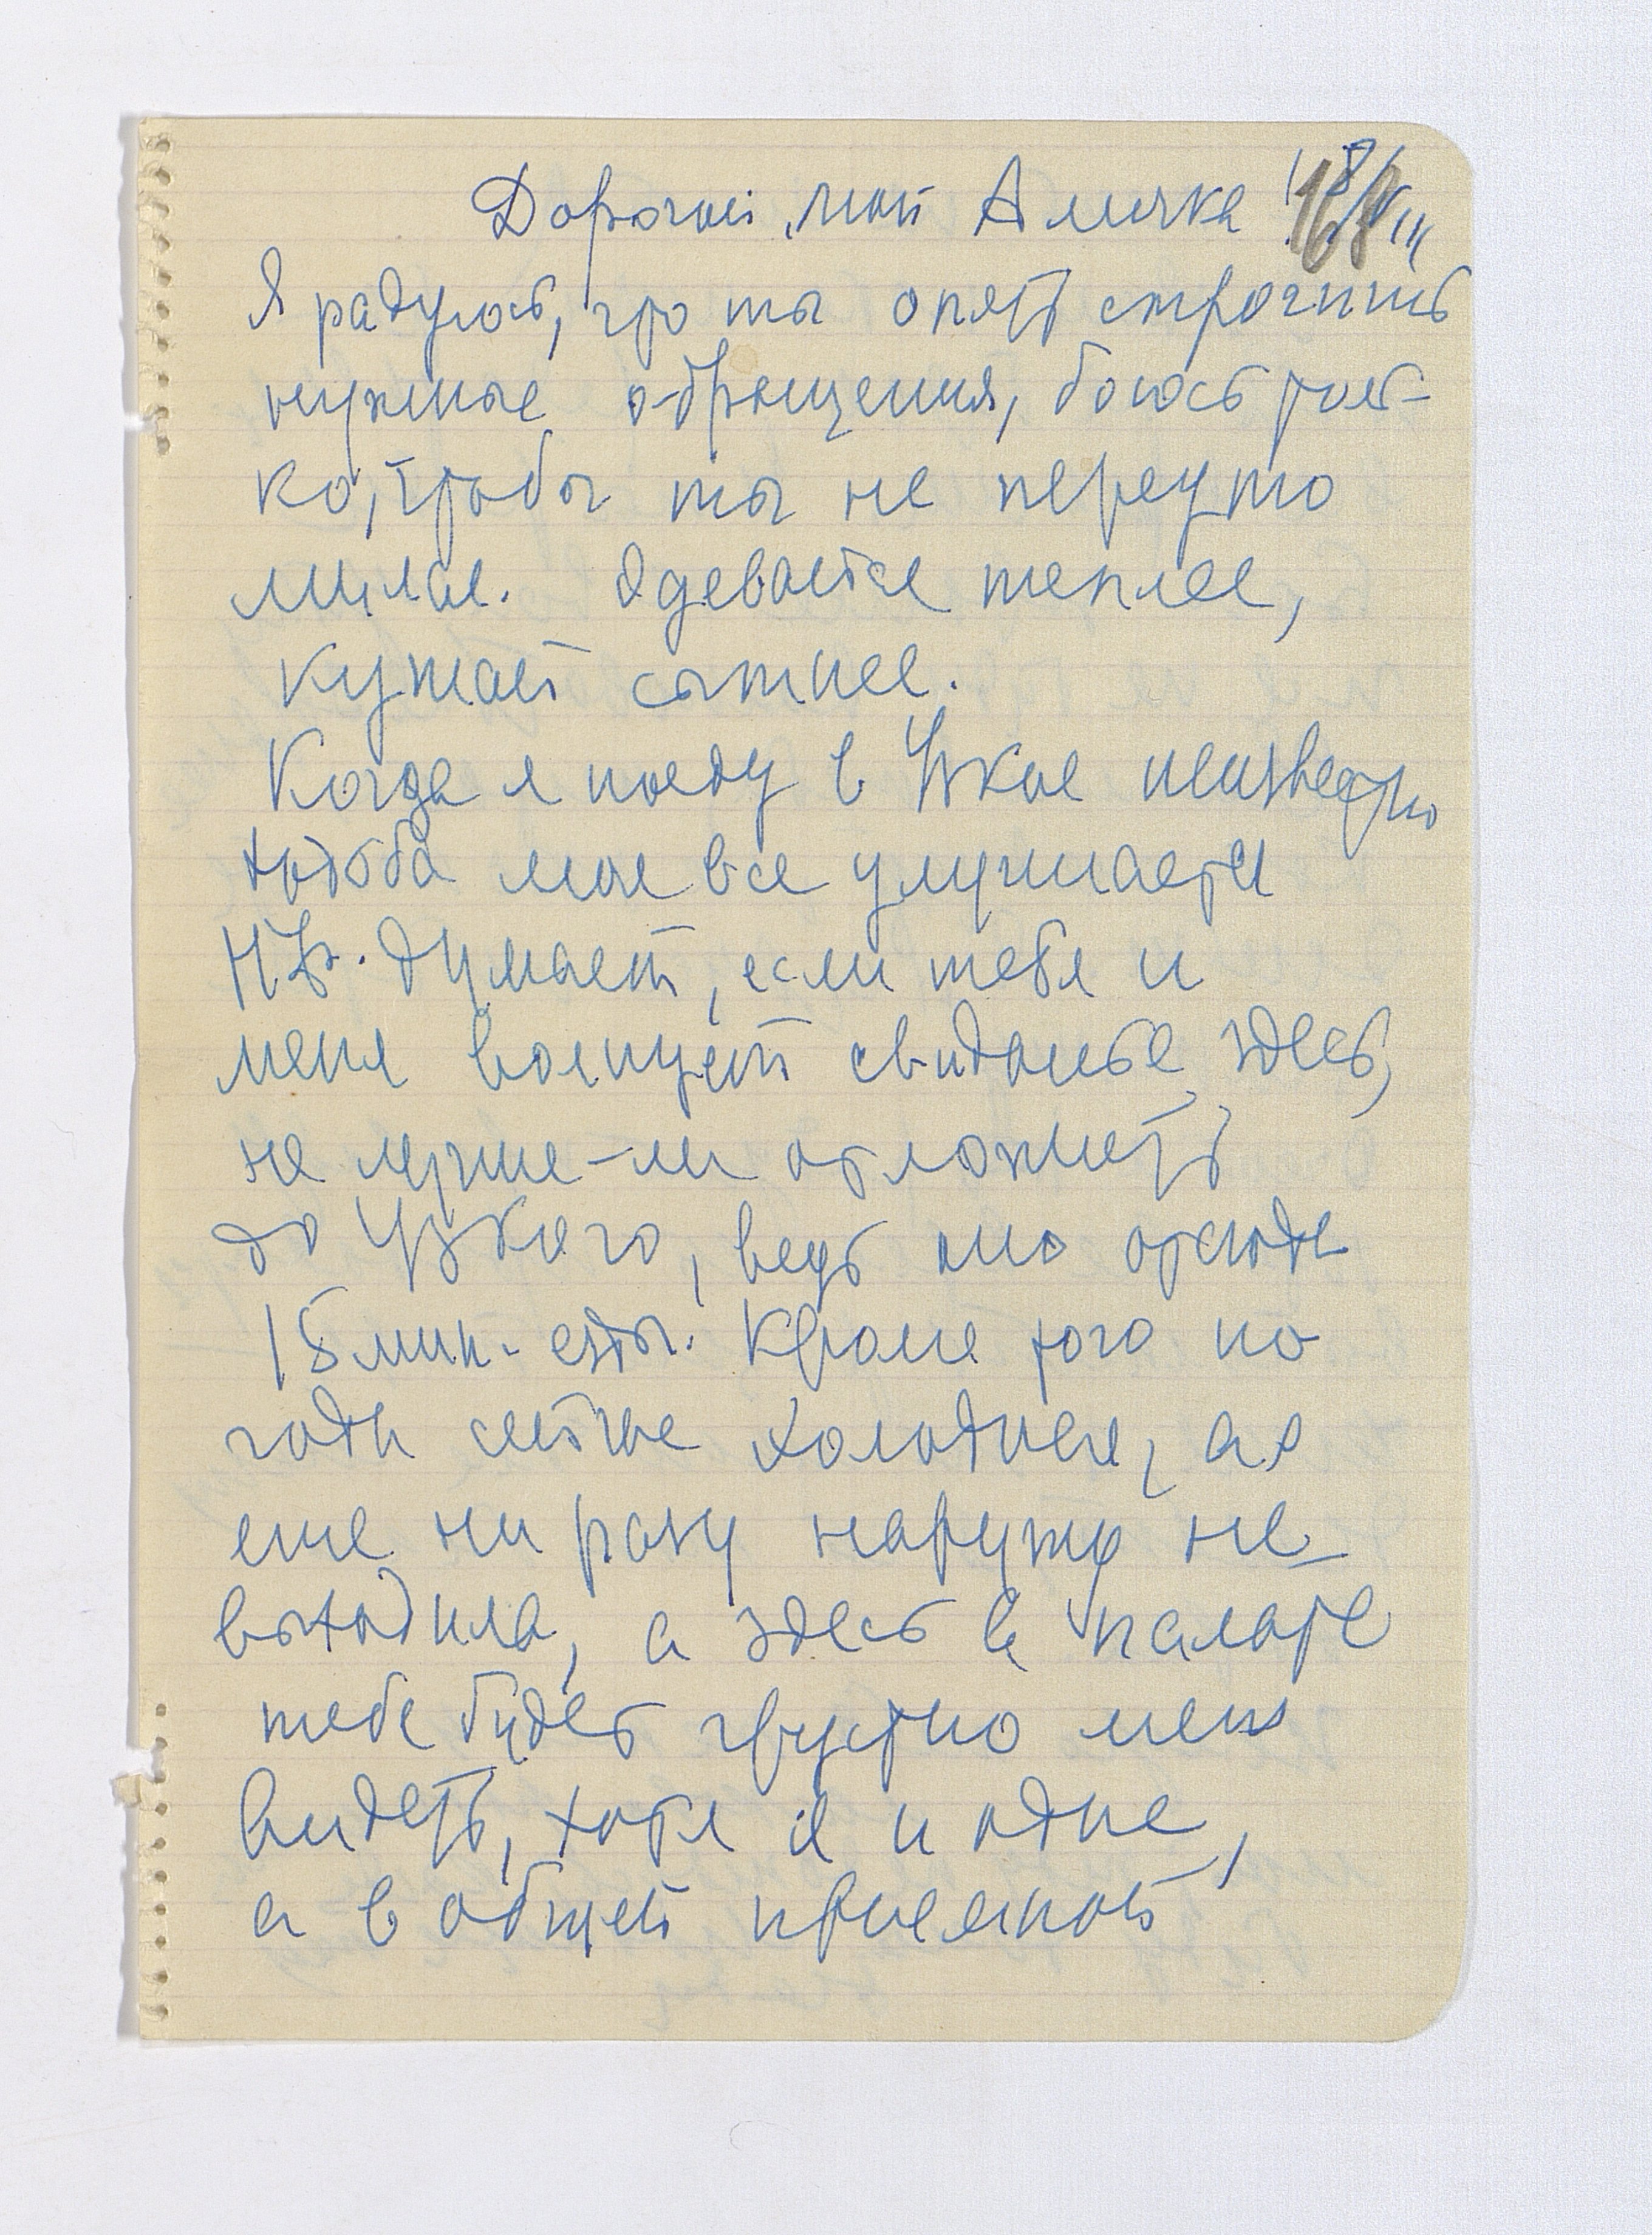 Дорогой мой Алечка! 8/VIII
168
Я радуюсь, что ты опять строчишь
нужные обращения, боюсь толь-
ко, чтобы ты не переуто
милас. Одевайся теплее,
кушай сытнее.
Когда я поеду в Узкое неизвестно
ходьба мое все улучшается
Н.В. думает, если тебя и
меня волнует свиданье здесь,
не лучше-ли отложить
до Узкого, ведь оно отсюда
15 мин. езды. Кроме того по
года сейчас холодная, а я
еще ни разу наружу не
выходила, а здесь в палате
тебе будет грустно меня
видеть, хотя я и одна,
а в общей приемной